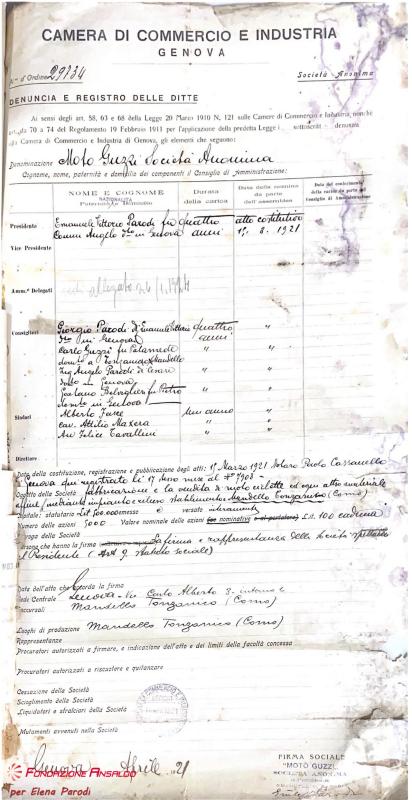 CAMERA DI COMMERCIO E INDUSTRIA
GENOVA
N.° d'Ordine 29734
Società Anonima
DENUNCIA E REGISTRO DELLE DITTE
Ai sensi degli art. 58, 63 e 68 della Legge 20 Marzo 1910 N. 121 sulle Camere di Commercio e Industria, nonchè
70 a 74 del Regolamento 19 Febbraio 1911 per l'applicazione della predetta Legge sottoscritt denunzia
alla Camera di Commercio e Industria di Genova, gli elementi che seguono:
Denominazione Moto Guzzi Società Anonima
Cognome, nome, paternità e domicilio dei componenti il Consiglio di Amministrazione:
NOME E COGNOME
NAZIONALITÀ
Paternità Domicilio
Durata della carica
Data della nomina da parte dell'assemblea
Data del conferimento della carica da parte del Consiglio di Amministrazione
Presidente Emanuele Vittorio Parodi fu quattro atto costitutivo
Comm Angelo dto in Genova anni 15. 3. 1921
Vice Presidente
Amm.i Delegati allegato
Consiglieri Giorgio Parodi di Emanuele Vittorio quattro "
dto in Genova anni
Carlo Guzzi fu Palamede " "
domto a Tonzanico Mandello
Ing Angelo Parodi di Cesare " "
domto in Genova
Gaetano Belviglieri fu Pietro " "
domto in Genova
Sindaci Alberto un anno "
Cav. Attilio Maxera " "
Avv Felice Cavallini " "
Direttore
Data della costituzione, registrazione e pubblicazione degli atti: 15 Marzo 1921 Notaro Paolo Cassanello
Genova qui registrato li 17 stesso mese al N° 7908
Oggetto della Società fabbricazione e la vendita di motociclette ed ogni atto materiale
affine, mediante impianto e esercizio stabilimento Mandello Tonzanico (Como)
Capitale: statutario Lit 500.000 emesso e versato interamente
Numero delle azioni 5000 Valore nominale delle azioni (se nominative o al portatore) Lit 100 cadauna
Proroga della Società
Persone che hanno la firma La firma e rappresentanza della Società spettante
al Presidente (Art 9 statuto sociale)
Data dell'atto che accorda la firma
Sede Centrale Genova - Via Carlo Alberto 3 - interno
Succursali Mandello Tonzanico (Como)
Luoghi di produzione Mandello Tonzanico (Como)
Rappresentanze
Procuratori autorizzati a firmare, e indicazione dell'atto e dei limiti della facoltà concessa
Procuratori autorizzati a riscuotere e quitanzare
Cessazione della Società
Scioglimento della Società
Liquidatori e stralciari della Società
Mutamenti avvenuti nella Società
Genova Aprile 21
FIRMA SOCIALE
"MOTO GUZZI"
SOCIETÀ ANONIMA
FONDAZIONE ANSALDO
per Elena Parodi